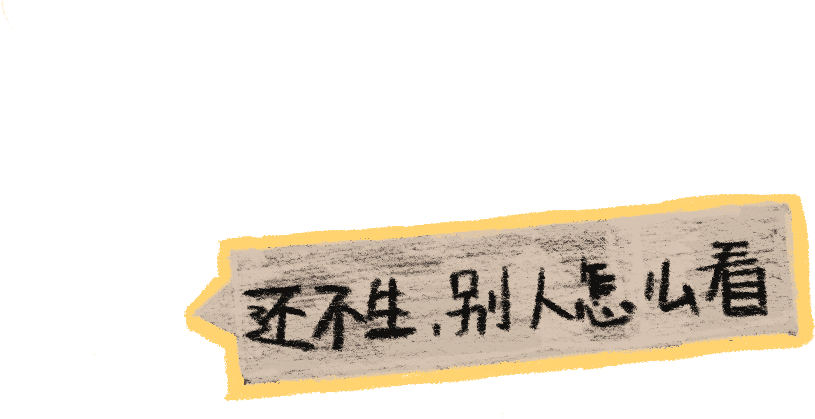 还不生.别人怎么看